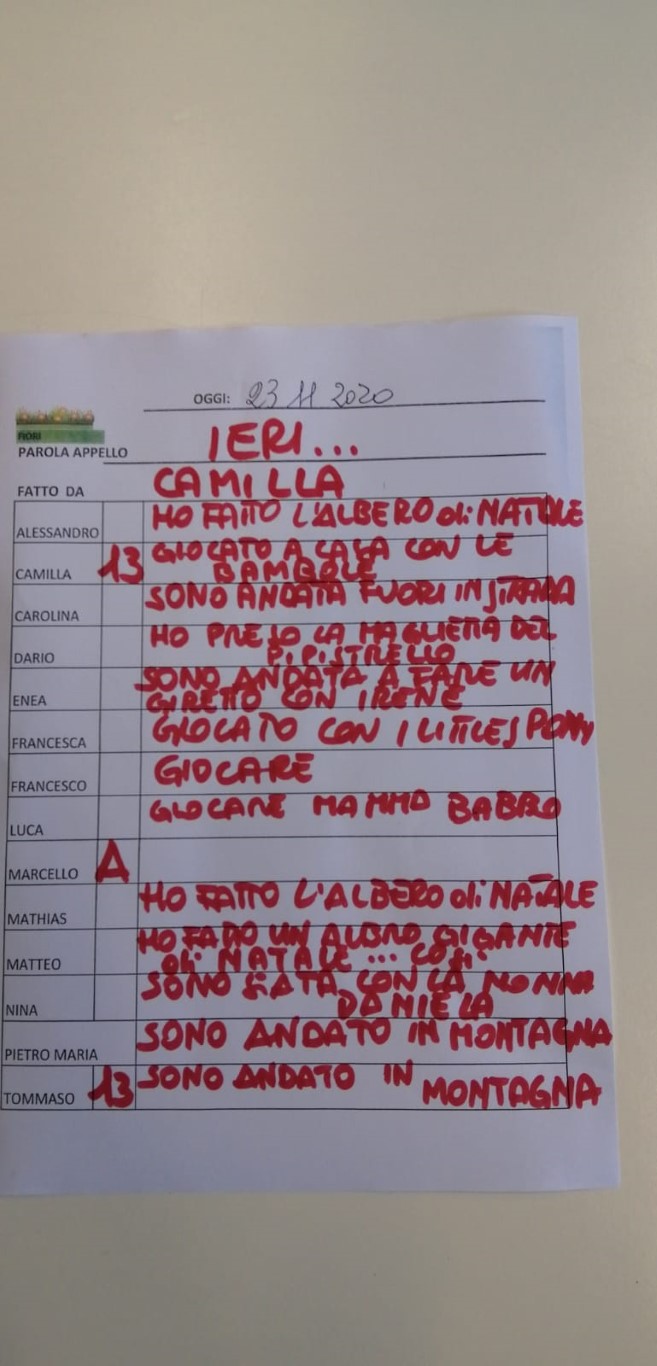 OGGI: 23 11 2020
FIORI
PAROLA APPELLO IERI...
FATTO DA CAMILLA
ALESSANDRO HO FATTO L'ALBERO di NATALE
CAMILLA 13 GIOCATO A CASA CON LE
BAMBOLE
CAROLINA SONO ANDATA FUORI IN STRADA
DARIO HO PRESO LA MAGLIETTA DEL
PIPISTRELLO
ENEA SONO ANDATA A FARE UN
GIRETTO CON IRENE
FRANCESCA GIOCATO CON I LITTLES PONY
FRANCESCO GIOCARE
LUCA GIOCARE MAMMA BABBO
MARCELLO A
MATHIAS HO FATTO L'ALBERO di NATALE
MATTEO HO FATTO UN ALBRO GIGANTE
di NATALE... COSI'
NINA SONO STATA CON LA NONNA
DANIELA
PIETRO MARIA SONO ANDATO IN MONTAGNA
TOMMASO 13 SONO ANDATO IN MONTAGNA